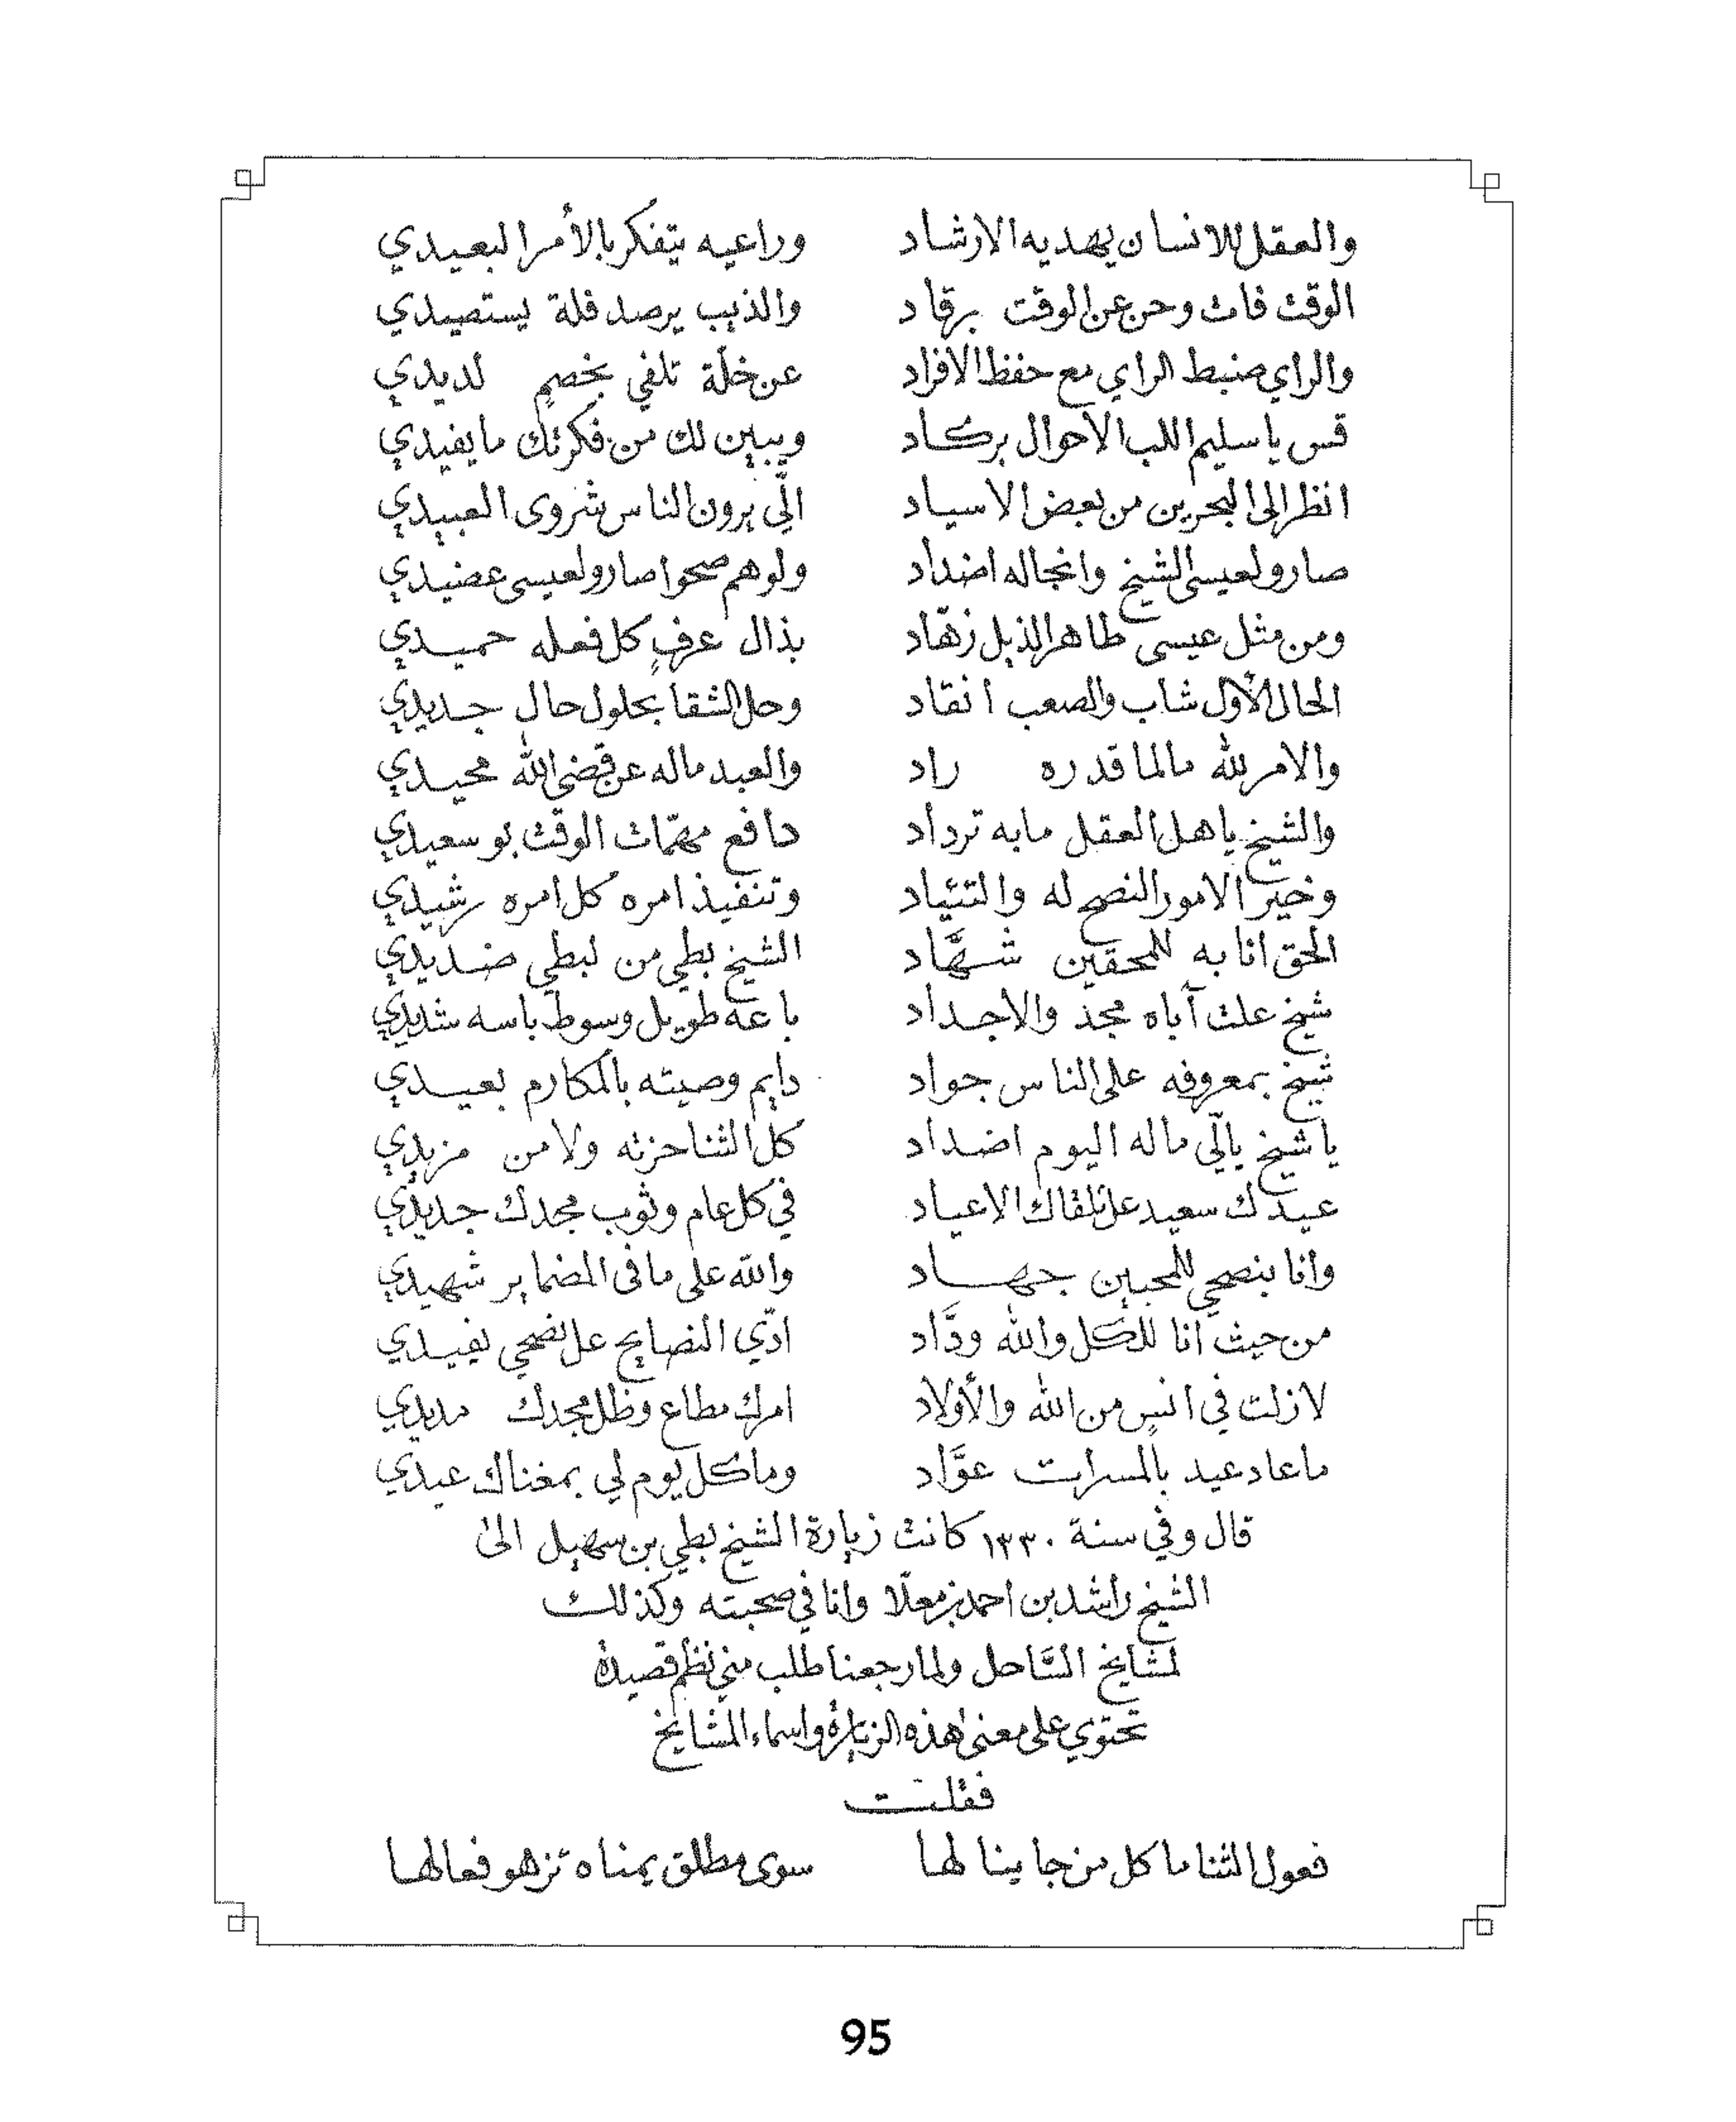 والعقل للانسان يهديه الارشاد وراعيه يتفكر بالأمر البعيدي
الوقت فات وحن عن الوقت برقاد والذيب يرصد فلة يستصيدي
والراي ضبط الراي مع حفظ الافراد عن خلّة تلفي بخصمٍ لديدي
قس يا سليم اللب الاحوال بركاد ويبين لك من فكرتك ما يفيدي
انظر الى البحرين من بعض الاسياد الّي يرون الناس شروى العبيدي
صارو لعيسى الشيخ وانجاله اضداد ولوهم صحوا صارو لعيسى عضيدي
ومن مثل عيسى طاهر الذيل زهّاد بذال عرفٍ كل فعله حميدي
الحال الأول شاب والصعب انقاد وحل الشقا بحلول حال جديدي
والامر لله مالما قدره راد والعبد ماله عن قضى الله محيدي
والشيخ يا هل العقل مابه ترداد دافع مهمّات الوقت بو سعيدي
وخير الامور النصح له والتئياد وتنفيذ امره كل امره رشيدي
الحق انا به للمحقين شهَّاد الشيخ بطي من لبطي ضديدي
شيخ علت آباه مجد والاجداد باعه طويل وسوط باسه شديدي
شيخ بمعروفه على الناس جواد دايم وصيته بالمكارم بعيدي
يا شيخ يالّي ماله اليوم اضداد كل الثنا حزته ولا من مزيدي
عيدك سعيد عل تلقاك الاعياد في كل عام وثوب مجدك جديدي
وانا بنصحي للمحبين جهاد والله على ما في الضماير شهيدي
من حيث انا للكل والله ودَّاد ادّي النصايح عل نصحي يفيدي
لا زلت في انسٍ من الله والأولاد امرك مطاع وظل مجدك مديدي
ما عاد عيد بالمسرات عوَّاد وما كل يوم لي بمغناك عيدي
قال وفي سنة ١٣٣٠ كانت زيارة الشيخ بطي بن سهيل الى
الشيخ راشد بن احمد بن معلّا وانا في صحبته وكذلك
لمشايخ السَّاحل ولما رجعنا طلب مني نظم قصيدة
تحتوي على معنى هذه الزيارة واسماء المشايخ
فقلت
فعول الثنا ما كل من جا ينالها سوى مطلق يمناه تزهو فعالها
95